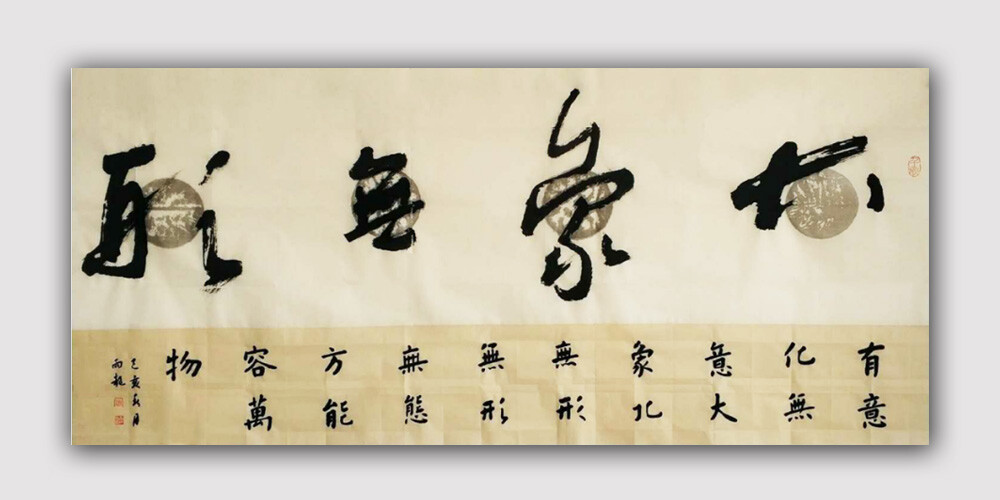 大象無形
有意
化無
意大
象化
無形
無形
無態
方能
容萬
物
己亥春月
雨龍